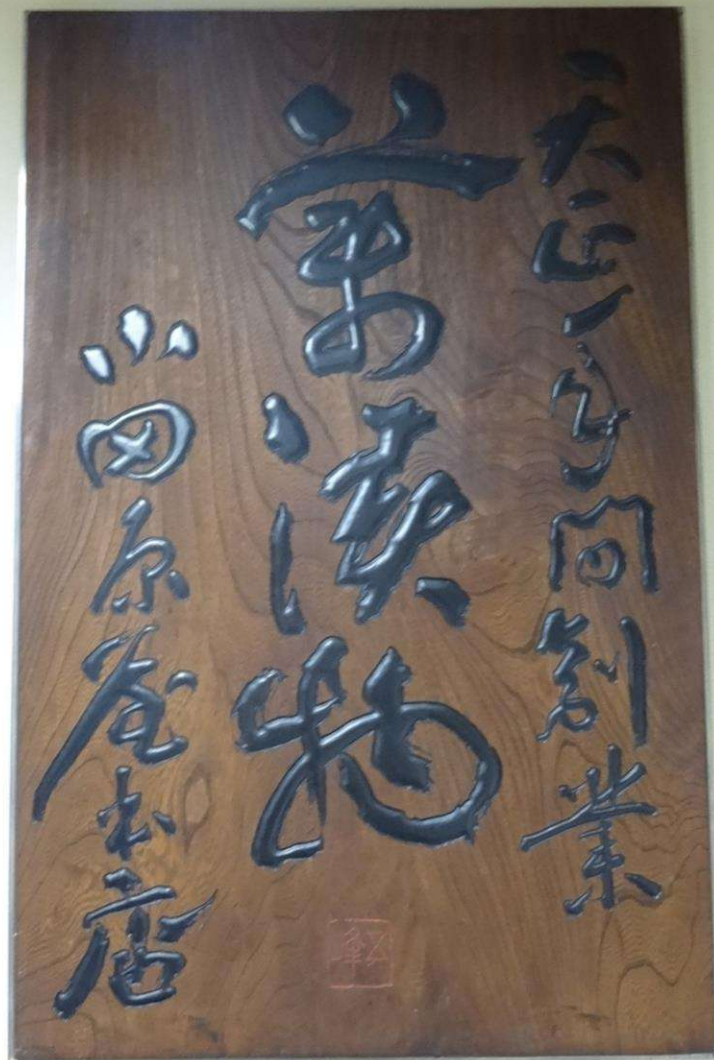 天正年間創業
萬漬物
小田原屋本店